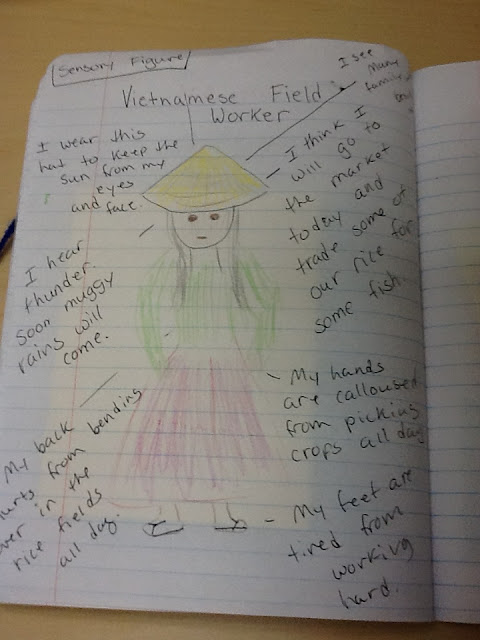 Sensory Figure
Vietnamese Field
Worker
I see
Many
I wear this
hat to keep the
sun from my
eyes
and face.
I think I
will go to
the market
today and
trade some of
our rice for
some fish.
I hear
thunder.
Soon muggy
rains will
come.
My back
hurts from bending
over in the
rice fields
all day.
My hands
are calloused
from picking
crops all day
My feet are
tired from
working
hard.